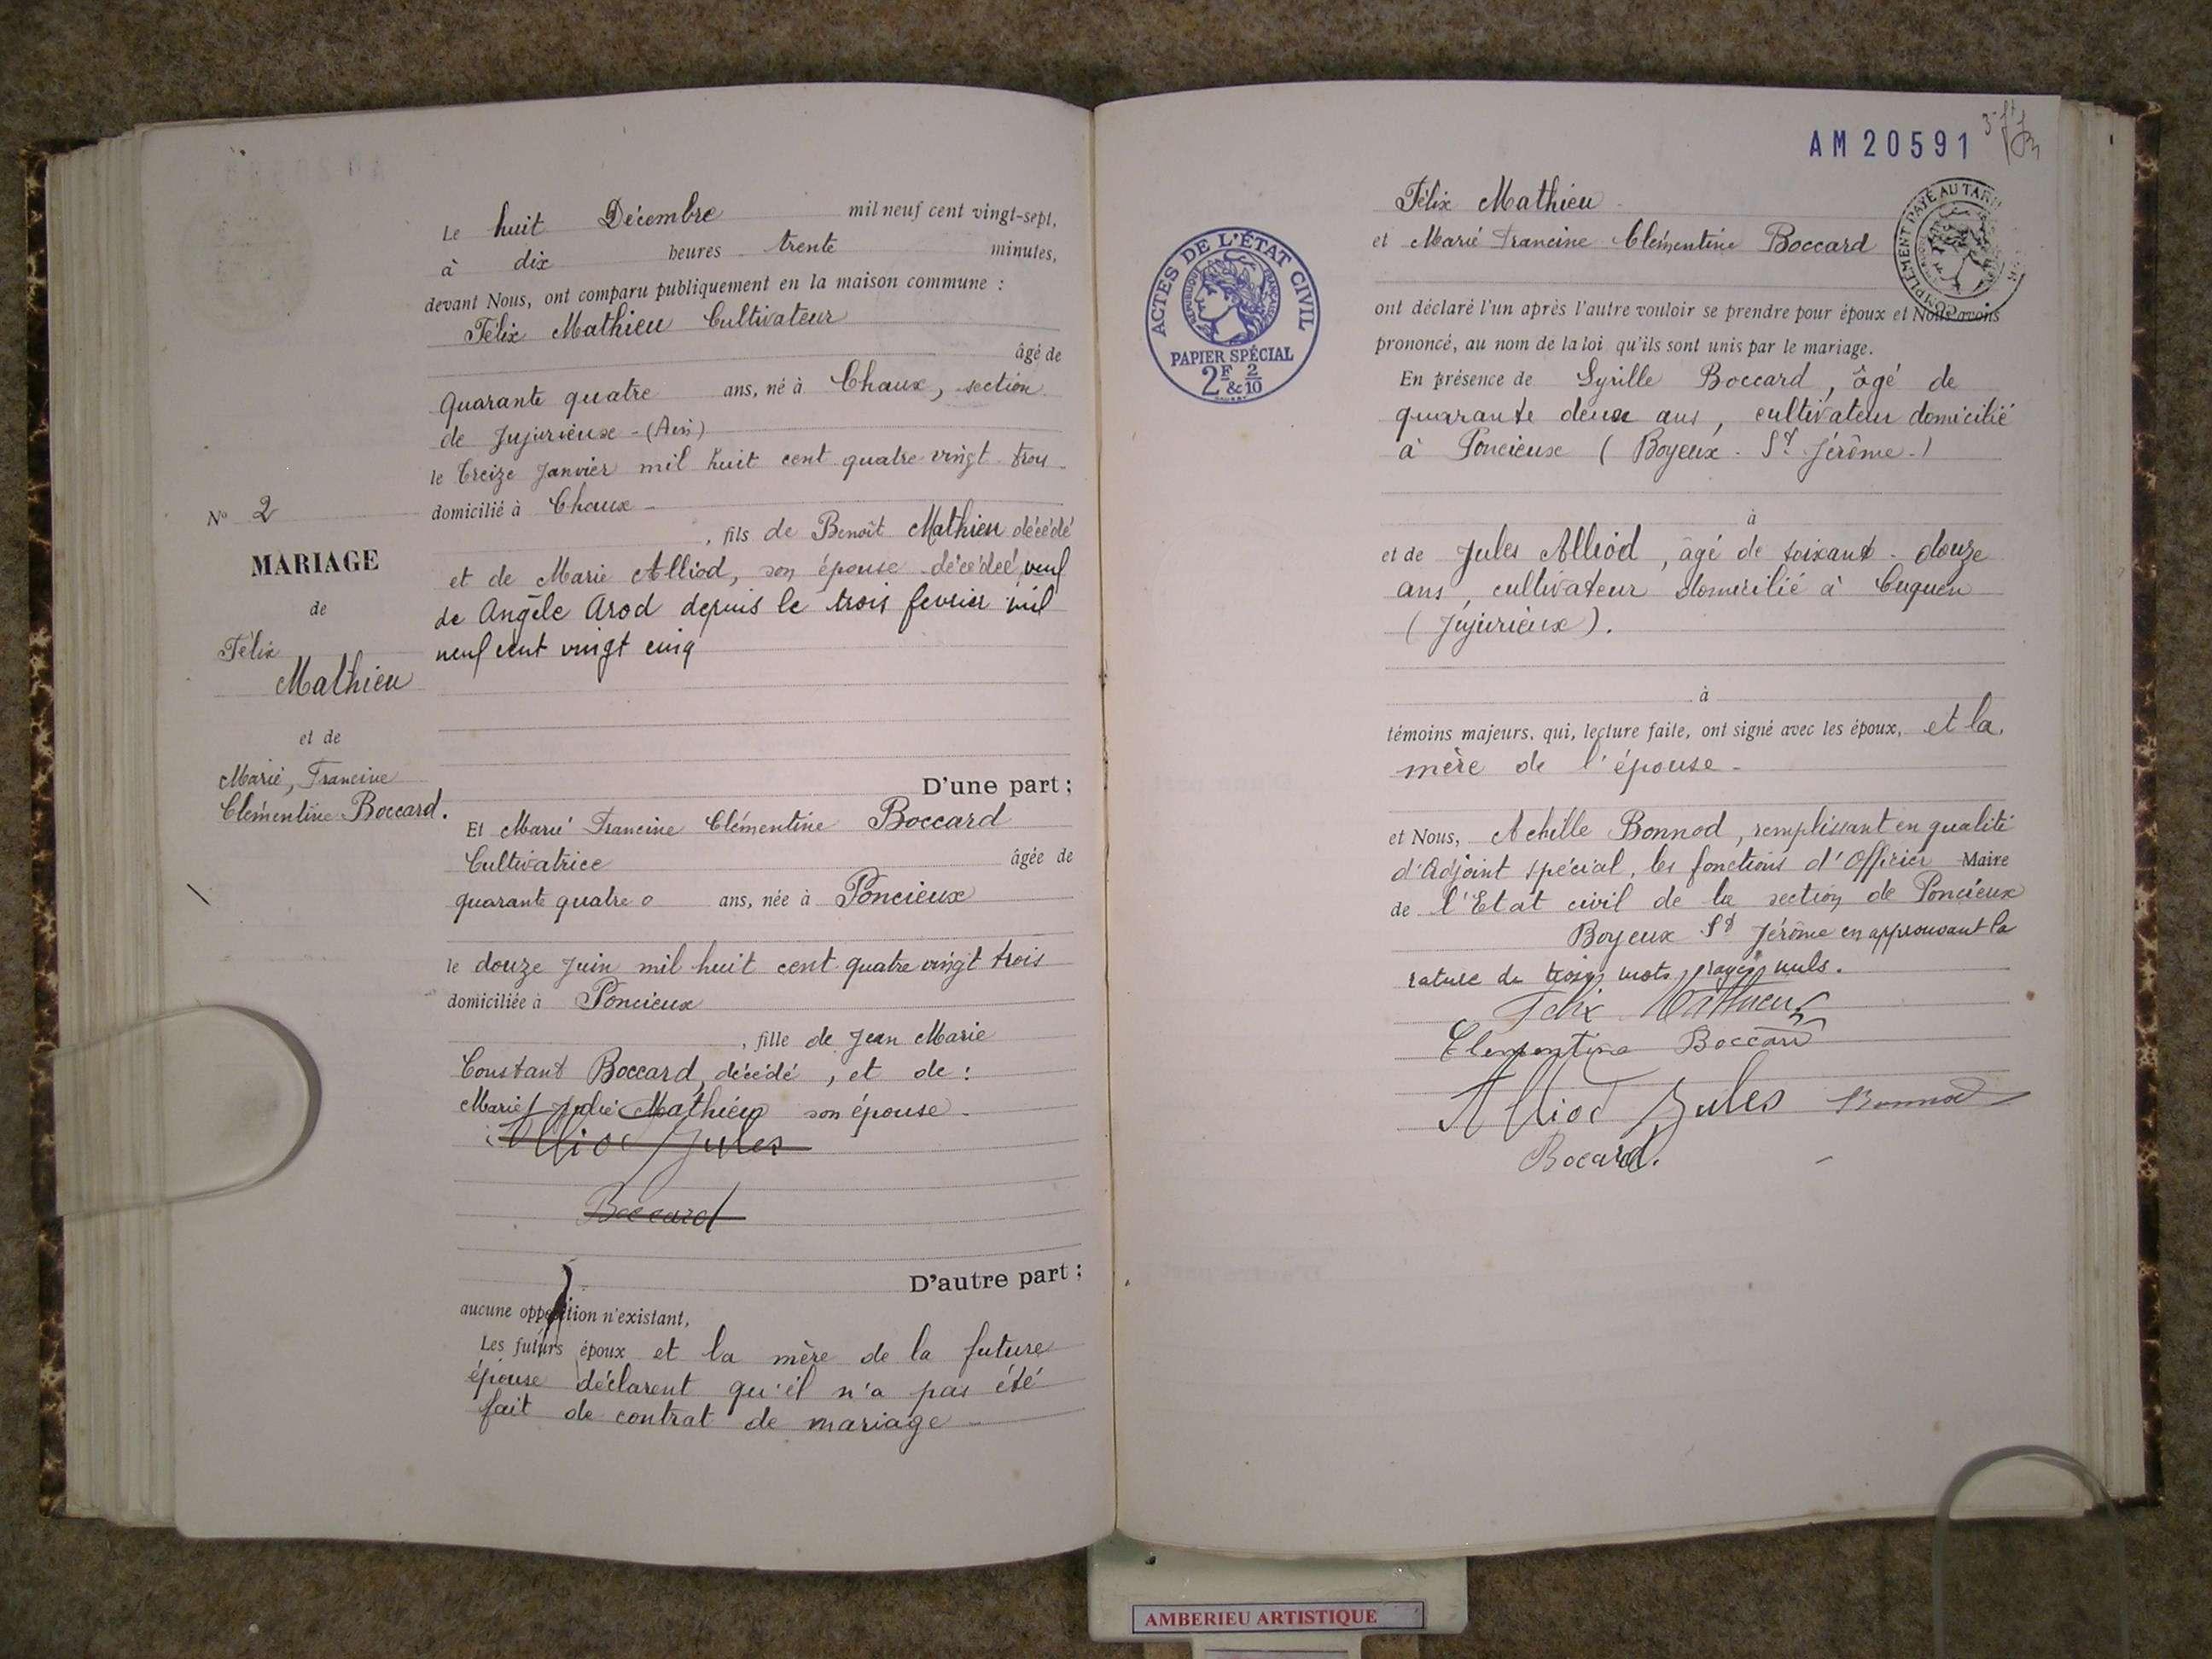 Le huit Décembre mil neuf cent vingt-sept,
à dix heures trente minutes,
devant Nous, ont comparu publiquement en la maison commune :
Félix Mathieu Cultivateur
âgé de
quarante quatre ans, né à Chaux, section
de Jujurieux - (Ain)
le treize Janvier mil huit cent quatre vingt trois
domicilié à Chaux -
, fils de Benoît Mathieu décédé
et de Marie Alliod, son épouse décédée, veuf
de Angèle Arod depuis le trois fevrier mil
neuf cent vingt cinq
N° 2
MARIAGE
de
Félix
Mathieu
et de
Marie, Francine
Clémentine Boccard.
D'une part ;
Et Marie Francine Clémentine Boccard
Cultivatrice âgée de
quarante quatre ans, née à Poncieux
le douze Juin mil huit cent quatre vingt trois
domiciliée à Poncieux
, fille de Jean Marie
Constant Boccard, décédé, et de :
Marie Mathieu son épouse -
Alliod Jules
Boccard
D'autre part ;
aucune opposition n'existant,
Les futurs époux et la mère de la future
épouse déclarent qu'il n'a pas été
fait de contrat de mariage -
AM 20591
ACTES DE L'ÉTAT CIVIL
RÉPUBLIQUE FRANÇAISE
PAPIER SPÉCIAL
2F & 2/10
COMPLÉMENT PAYÉ AU TARIF
Félix Mathieu
et Marie Francine Clémentine Boccard
ont déclaré l'un après l'autre vouloir se prendre pour époux et Nous avons
prononcé, au nom de la loi qu'ils sont unis par le mariage.
En présence de Syrille Boccard, âgé de
quarante deux ans, cultivateur domicilié
à Poncieux (Boyeux - St Jérôme -)
à
et de Jules Alliod, âgé de soixant - douze
ans, cultivateur domicilié à Cuquen
(Jujurieux).
à
témoins majeurs, qui, lecture faite, ont signé avec les époux, et la
mère de l'épouse -
et Nous, Achille Bonnod, remplissant en qualité
d'Adjoint spécial, les fonctions d'Officier Maire
de l'Etat civil de la section de Poncieux
Boyeux St Jérôme en approuvant la
rature de trois mots rayés nuls.
Felix Mathieu
Clementine Boccard
Alliod Jules Bonnod
Bocard.
AMBERIEU ARTISTIQUE